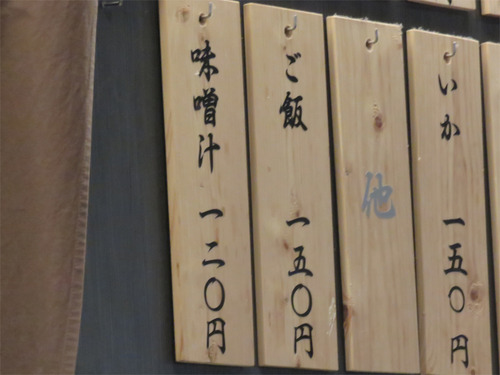 いか 一五〇円
他
ご飯 一五〇円
味噌汁 一二〇円